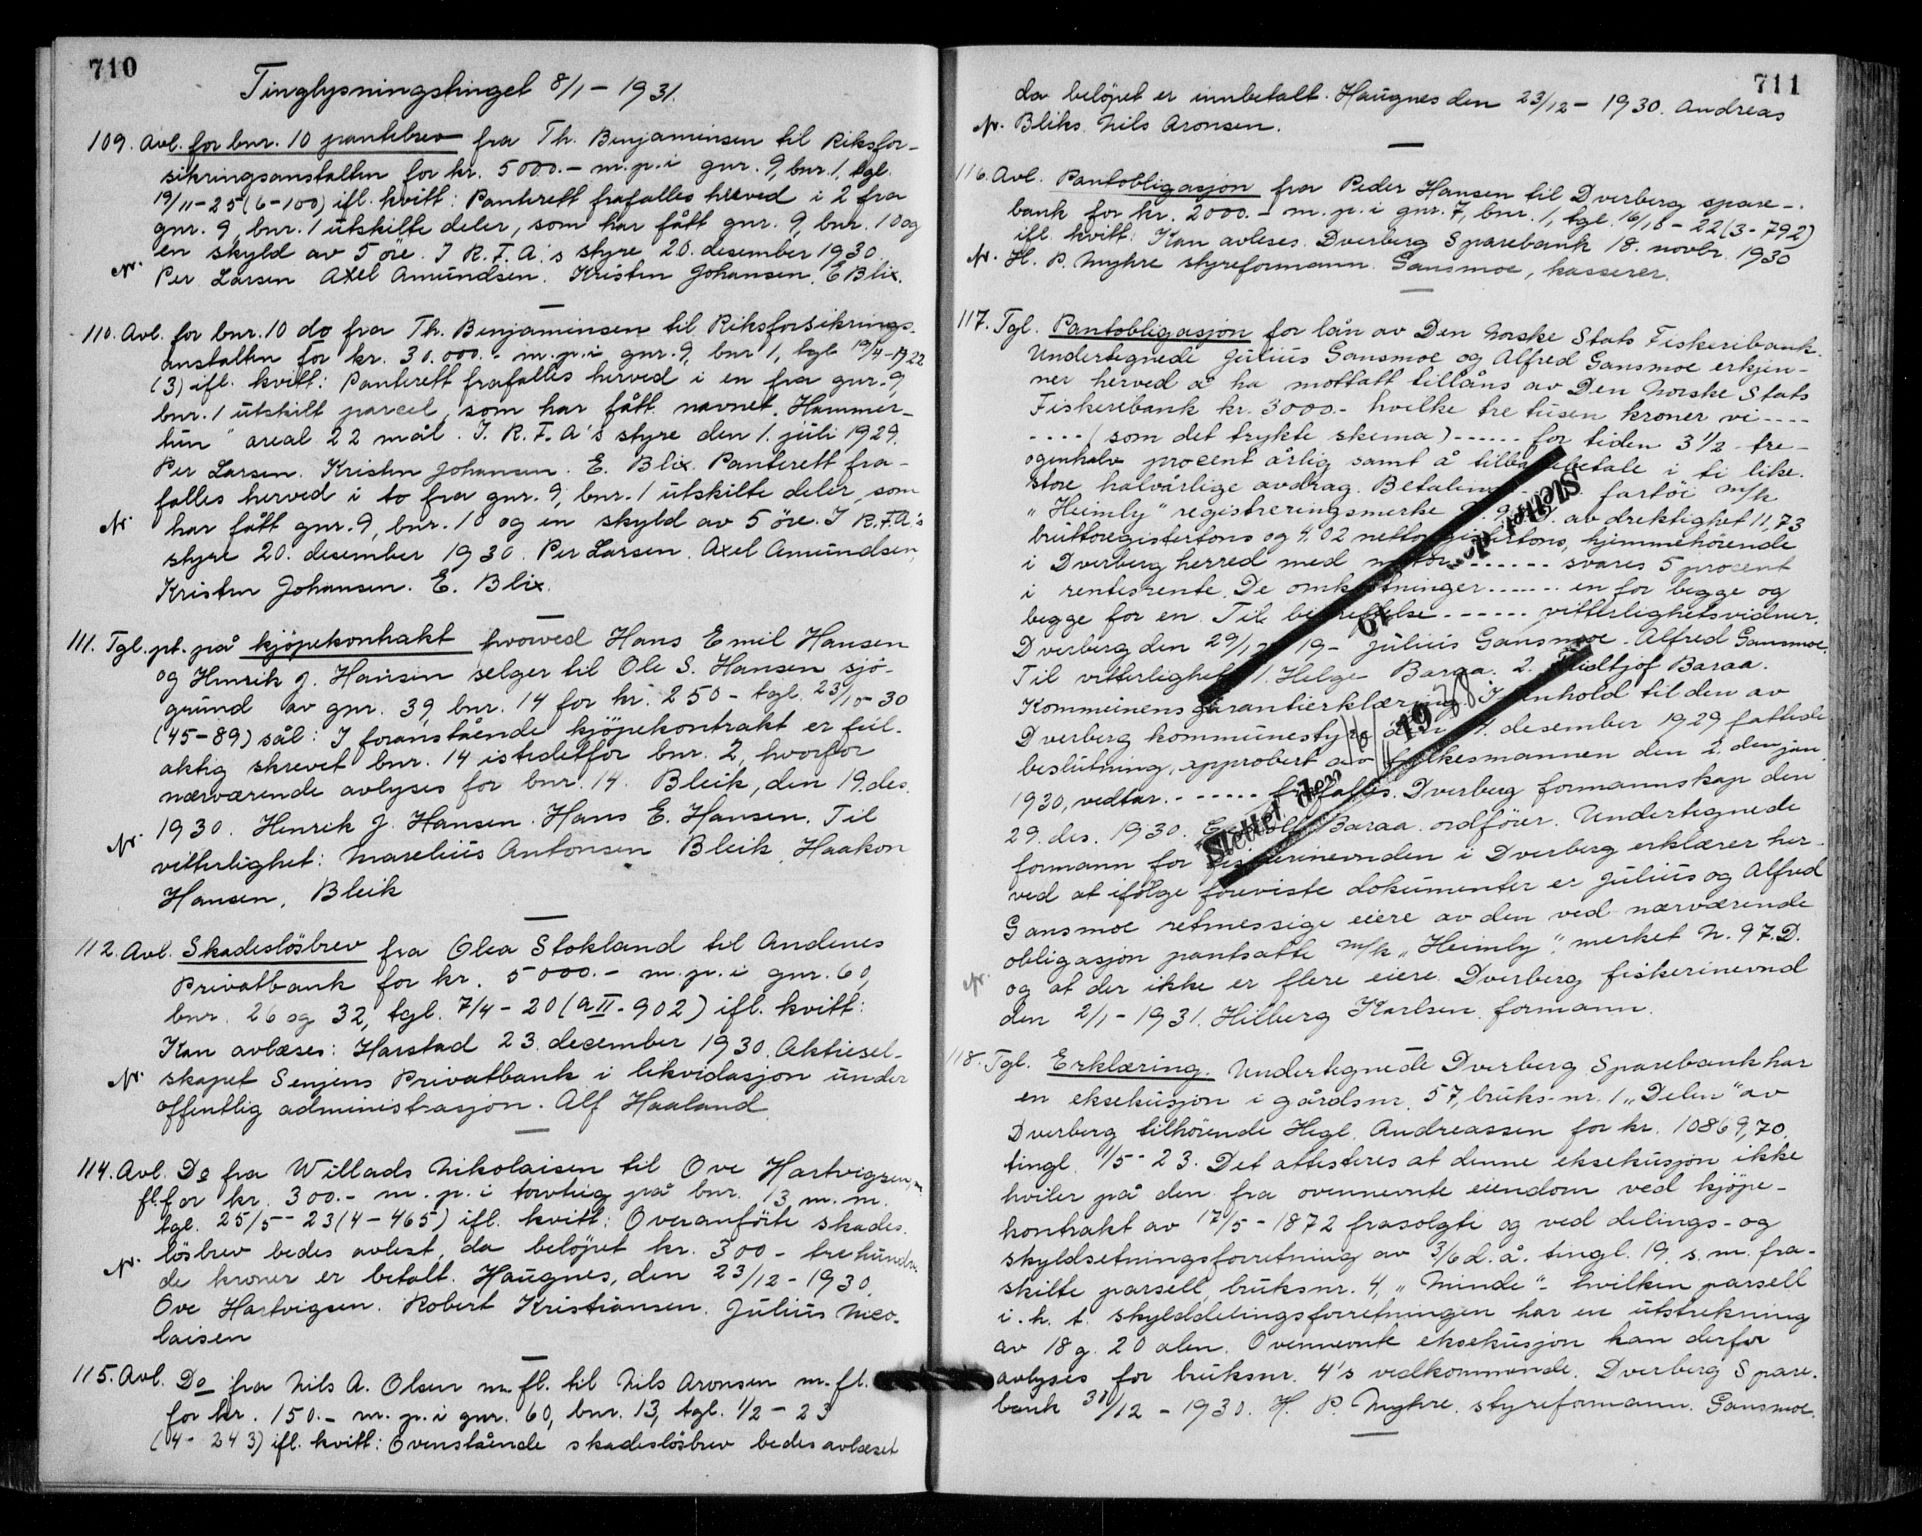 710
Tinglysningstinget 8/1 - 1931.
109. Avl. for bnr. 10 pantebrev fra Th. Benjaminsen til Riksfor-
sikringsanstalten for kr. 5000.- m.p.i gnr. 9, bnr. 1, tgl.
19/11-25 (6-100) ifl. kvitt: Panterett frafalles herved i 2 fra
gnr. 9, bnr. 1 utskilte deler, som har fått gnr. 9, bnr. 10 og
en skyld av 5 öre. I R.F.A.'s styre 20. desember 1930.
Per Larsen Axel Amundsen. Kristen Johansen. E Blix.
110. Avl. for bnr. 10 do fra Th. Benjaminsen til Riksforsikrings-
anstalten for kr. 30.000.- m.p.i gnr. 9, bnr 1, tgl. 19/4-1922
(3) ifl. kvitt: Panterett frafalles herved i en fra gnr. 9,
bnr. 1 utskilt parcel, som har fått navnet. Hammer-
tun" areal 22 mål. I. R.F.A's styre den 1. juli 1929.
Per Larsen. Kristen Johansen. E. Blix. Panterett fra-
falles herved i to fra gnr. 9, bnr. 1 utskilte deler, som
Nr. har fått gnr. 9, bnr. 10 og en skyld av 5 öre. I R.F.A.'s
styre 20. desember 1930. Per Larsen. Axel Amundsen,
Kristen Johansen. E. Blix.
111. Tgl. pt. på kjöpekontrakt hvorved Hans Emil Hansen
og Henrik J. Hansen selger til Ole S. Hansen sjö-
grund av gnr. 39, bnr. 14 for kr. 250- tgl. 23/10-30
(45-89) sål: I foranstående kjöpekontrakt er feil-
aktig skrevet bnr. 14 istedetfor bnr. 2, hvorfor
nærværende avlyses for bnr. 14. Bleik, den 19. des.
Nr. 1930. Henrik J. Hansen. Hans E. Hansen. Til
vitterlighet: Marelius Antonsen Bleik, Haakon
Hansen, Bleik
112. Avl. Skadeslösbrev fra Olea Stokland til Andenes
Privatbank for kr. 5000.- m.p.i gnr. 60,
bnr. 26 og 32, tgl. 7/4-20 (a II - 902) ifl. kvitt:
Kan avlæses: Harstad 23. december 1930. Aktiesel-
Nr. skapet Senjens Privatbank i likvidasjon under
offentlig administrasjon. Alf Haaland.
114. Avl. Do fra Willads Nikolaisen til Ove Hartvigsen, m.
fl. for kr. 300.- m.p.i torvteig på bnr. 13 m.m.
tgl. 25/5-23 (4-465) ifl. kvitt: Overanförte skades-
Nr. lösbrev bedes avlest, da belöpet kr. 300- tre hundre-
de kroner er betalt. Haugnes, den 23/12-1930.
Ove Hartvigsen. Robert Kristiansen. Julius Nico-
laisen
115. Avl. Do fra Nils A. Olsen m.fl. til Nils Aronsen m.fl.
for kr. 150.- m.p.i gnr. 60, bnr. 13, tgl. 1/2-23
(4-243) ifl. kvitt: Ovenstående skadeslösbrev bedes avlæset
711
da belöpet er innbetalt. Haugnes den 23/12-1930. Andreas
Nr. Bliks. Nils Aronsen.
116. Avl. Pantobligasjon fra Peder Hansen til Dverberg spare-
bank for kr. 2000.- m.p.i gnr. 7, bnr. 1, tgl. 16/6-22 (3-792)
ifl. kvitt: Kan avleses. Dverberg Sparebank 18. novbr. 1930
Nr. H. P. Myhre styreformann. Gansmoe, kasserer.
117. Tgl. Pantobligasjon for lån av Den Norske Stats Fiskeribank.
Undertegnede Julius Gansmoe og Alfred Gansmoe erkjen-
ner herved å ha mottatt tillåns av Den Norske Stats
Fiskeribank kr. 3000.- hvilke tre tusen kroner vi ----
---- (som det trykte skema) ------ for tiden 3 1/2 tre-
ogenhalv procent årlig samt å tilbakebetale i ti like-
store halvårlige avdrag. Betalings fartöi m/k
"Heimly" registreringsmerke av drektighet 11,73
bruttoregistertons og 4,02 nettoregistertons, hjemmehörende
i Dverberg herred med motor ------ svares 5 procent
i rentesrente. De omkostninger ------ en for begge og
begge for en. Til bekreftelse ------ vitterlighetsvidner.
Dverberg den 29/ 19- Julius Gansmoe. Alfred Gansmoe.
Til vitterlighet: 1. Helge Baraa. 2. Fridtjof Baraa.
Kommunens garantierklæring. I henhold til den av
Dverberg kommunestyre den 4. desember 1929 fattede
beslutning, approbert av fylkesmannen den 2. den jan.
1930, vedtar ------ frafalles. Dverberg formannskap den
29. des. 1930. Baraa. ordförer. Undertegnede
formann for fiskerinevnden i Dverberg erklærer her-
ved at ifölge foreviste dokumenter er Julius og Alfred
Gansmoe retmessige eiere av den ved nærværende
obligasjon pantsatte m/k "Heimly", merket N. 97. D.
Nr. og at der ikke er flere eiere. Dverberg fiskerinevnd
den 2/1-1931. Hilberg Karlsen. formann.
Slettet den 19
Slettet den 16/11 1938
118. Tgl. Erklæring. Undertegnede Dverberg Sparebank har
en eksekusjon i gårdsnr. 57, bruks-nr. 1 "Delen" av
Dverberg tilhörende Hegl. Andreassen for kr. 10869,70.
tingl. 1/5-23. Det attesteres at denne eksekusjon ikke
hviler på den fra ovennevnte eiendom ved kjöpe-
kontrakt av 17/5-1872 frasolgte og ved delings- og
skyldsetningsforretning av 3/6 d.å. tingl. 19. s.m. fra-
skilte parsell, bruksnr. 4, "Minde"- hvilken parsell
i.h.t. skylddelingsforretningen har en utstrekning
av 18 g. 20 alen. Ovennevnte eksekusjon kan derfor
avlyses for bruksnr. 4's vedkommende. Dverberg Spare-
bank 31/12-1930. H. P. Myhre. styreformann. Gansmoe.